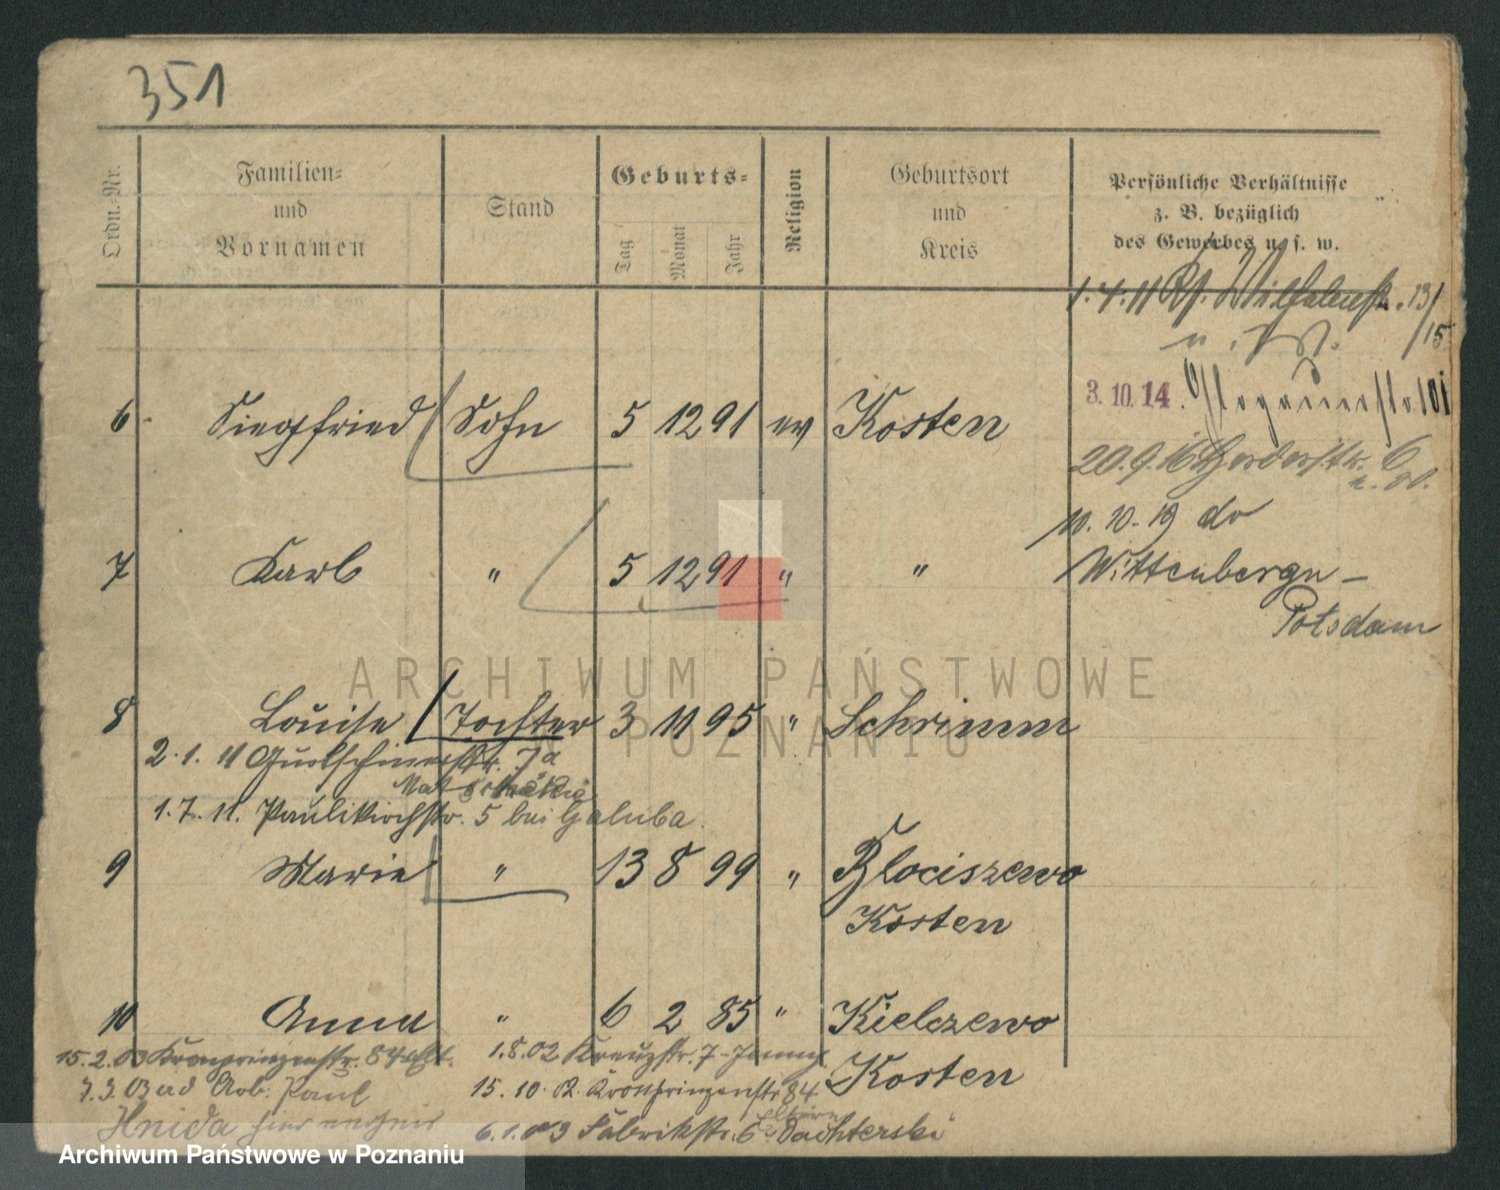 351
Ordn.-Nr.
Familien-
und
Vornamen
Stand
Geburts-
Tag
Monat
Jahr
Religion
Geburtsort
und
Kreis
Persönliche Verhältnisse
z. B. bezüglich
des Gewerbes u. s. w.
1.4.11 Wilhelmstr. 13/15
3.10.14. Glogauerstr 101
20.9.16 Herderstr. 6
6 Siegfried Sohn 5 12 91 ev Kosten
10.10.19 do
7 Karl " 5 12 91 " "
Wittenberge-
Potsdam
8 Louise Tochter 3 11 95 " Schrimm
2.1.11 7a
1.7.11. Paulikirchstr. 5 bei Galuba
9 Marie " 13 8 99 " Blociszewo
Kosten
10 Anna " 6 2 85 " Kielczewo
Kosten
15.2.03 Kronprinzenstr. 84
1.8.02 Kreuzstr. 7
7.3.03 ad Arb: Paul
15.10.02. Kronprinzenstr 84
Hnida
6.1.03 Fabrikstr. 6 Dachterski
ARCHIWUM PAŃSTWOWE
W POZNANIU
Archiwum Państwowe w Poznaniu